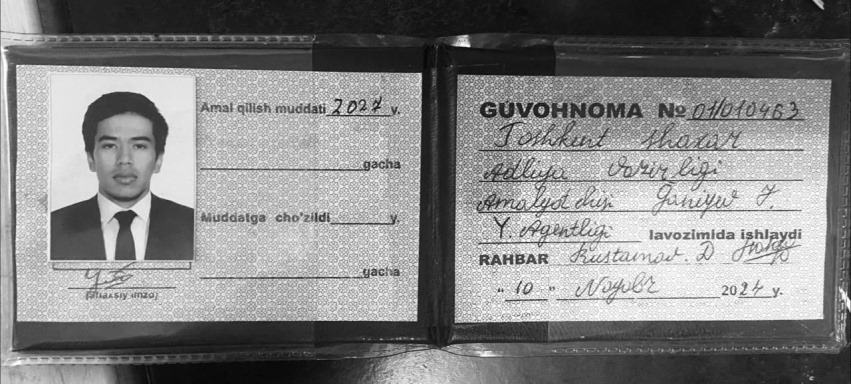 Amal qilish muddati 2027 y.
gacha
Muddatga cho'zildi y.
gacha
(shaxsiy imzo)
GUVOHNOMA № 01/010463
Toshkent shaxar
Adliya Vazirligi
Amalyotchisi Ganiyev J.
Y. Agentligi lavozimida ishlaydi
RAHBAR Rustamov. D
"10" Noyabr 2024 y.